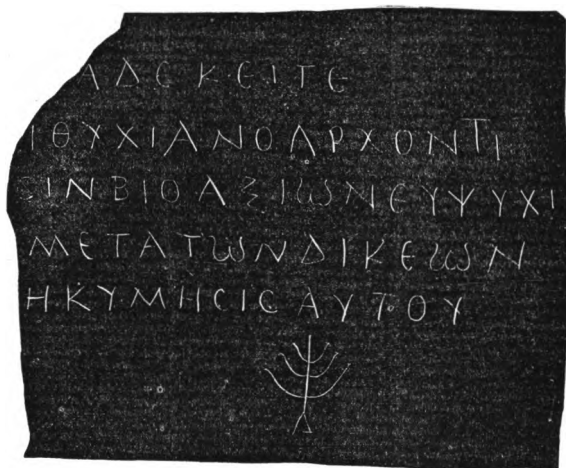 ΑΔΕ ΚΕΙΤΕ
ΙΘΥΧΧΙΑΝΟ ΑΡΧΟΝΤΙ
ϹΙΝΒΙΟ ΑΞΙΩΝ ΕΥΨΥΧΙ
ΜΕΤΑ ΤΩΝ ΔΙΚΕΩΝ
Η ΚΥΜΗϹΙϹ ΑΥΤΟΥ